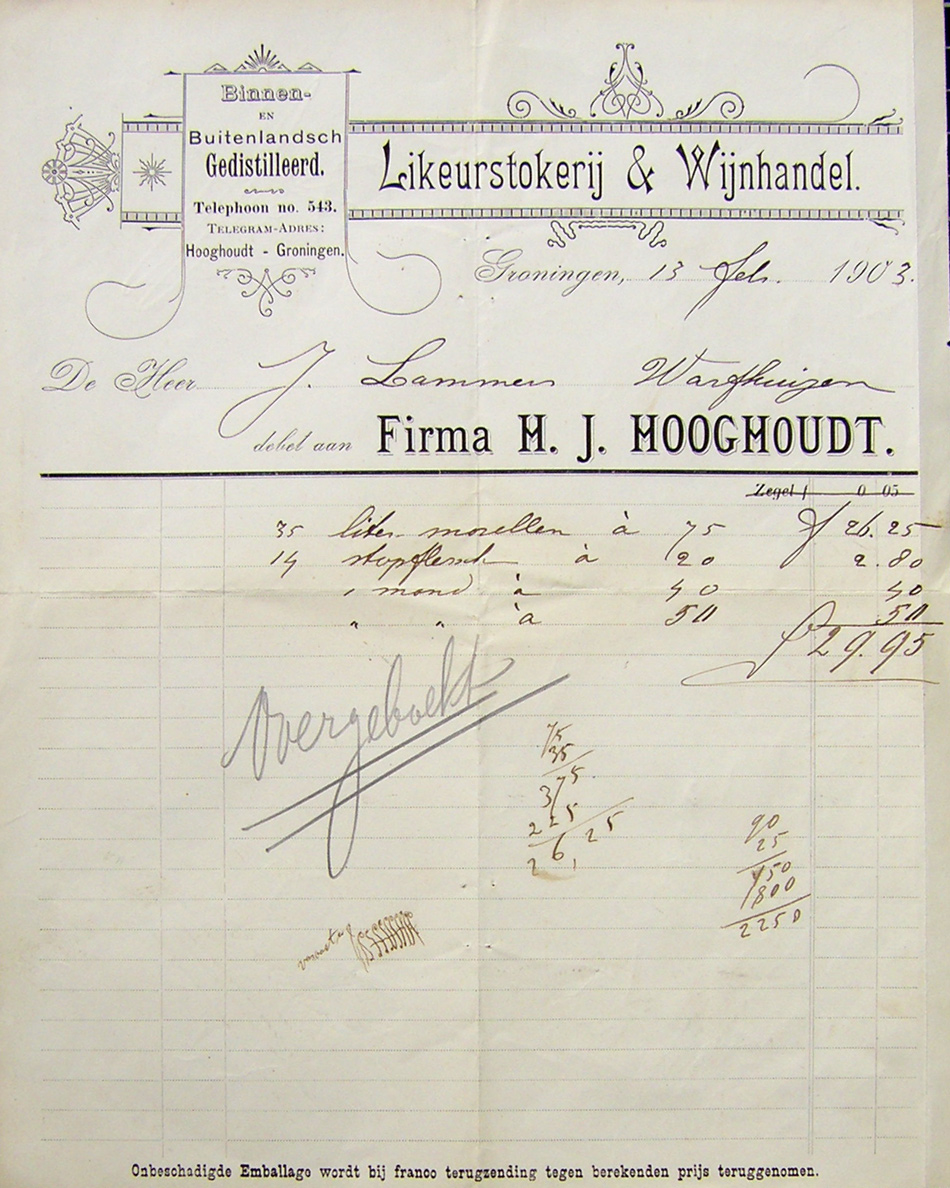 Binnen-
EN
Buitenlandsch
Gedistilleerd.
Telephoon no. 543.
TELEGRAM-ADRES:
Hooghoudt - Groningen.
Likeurstokerij & Wijnhandel.
Groningen, 13 Feb. 1903.
De Heer J. Lammers Warfhuizen
debet aan Firma H. J. HOOGHOUDT.
Zegel f 0 05
35 liter morellen à 75 f 26.25
14 stopflesch à 20 2.80
1 mand à 40 40
" " à 50 50
f 29.95
Overgeboekt
75
35
375
225
26,25
90
25
450
1800
2250
Onbeschadigde Emballage wordt bij franco terugzending tegen berekenden prijs teruggenomen.